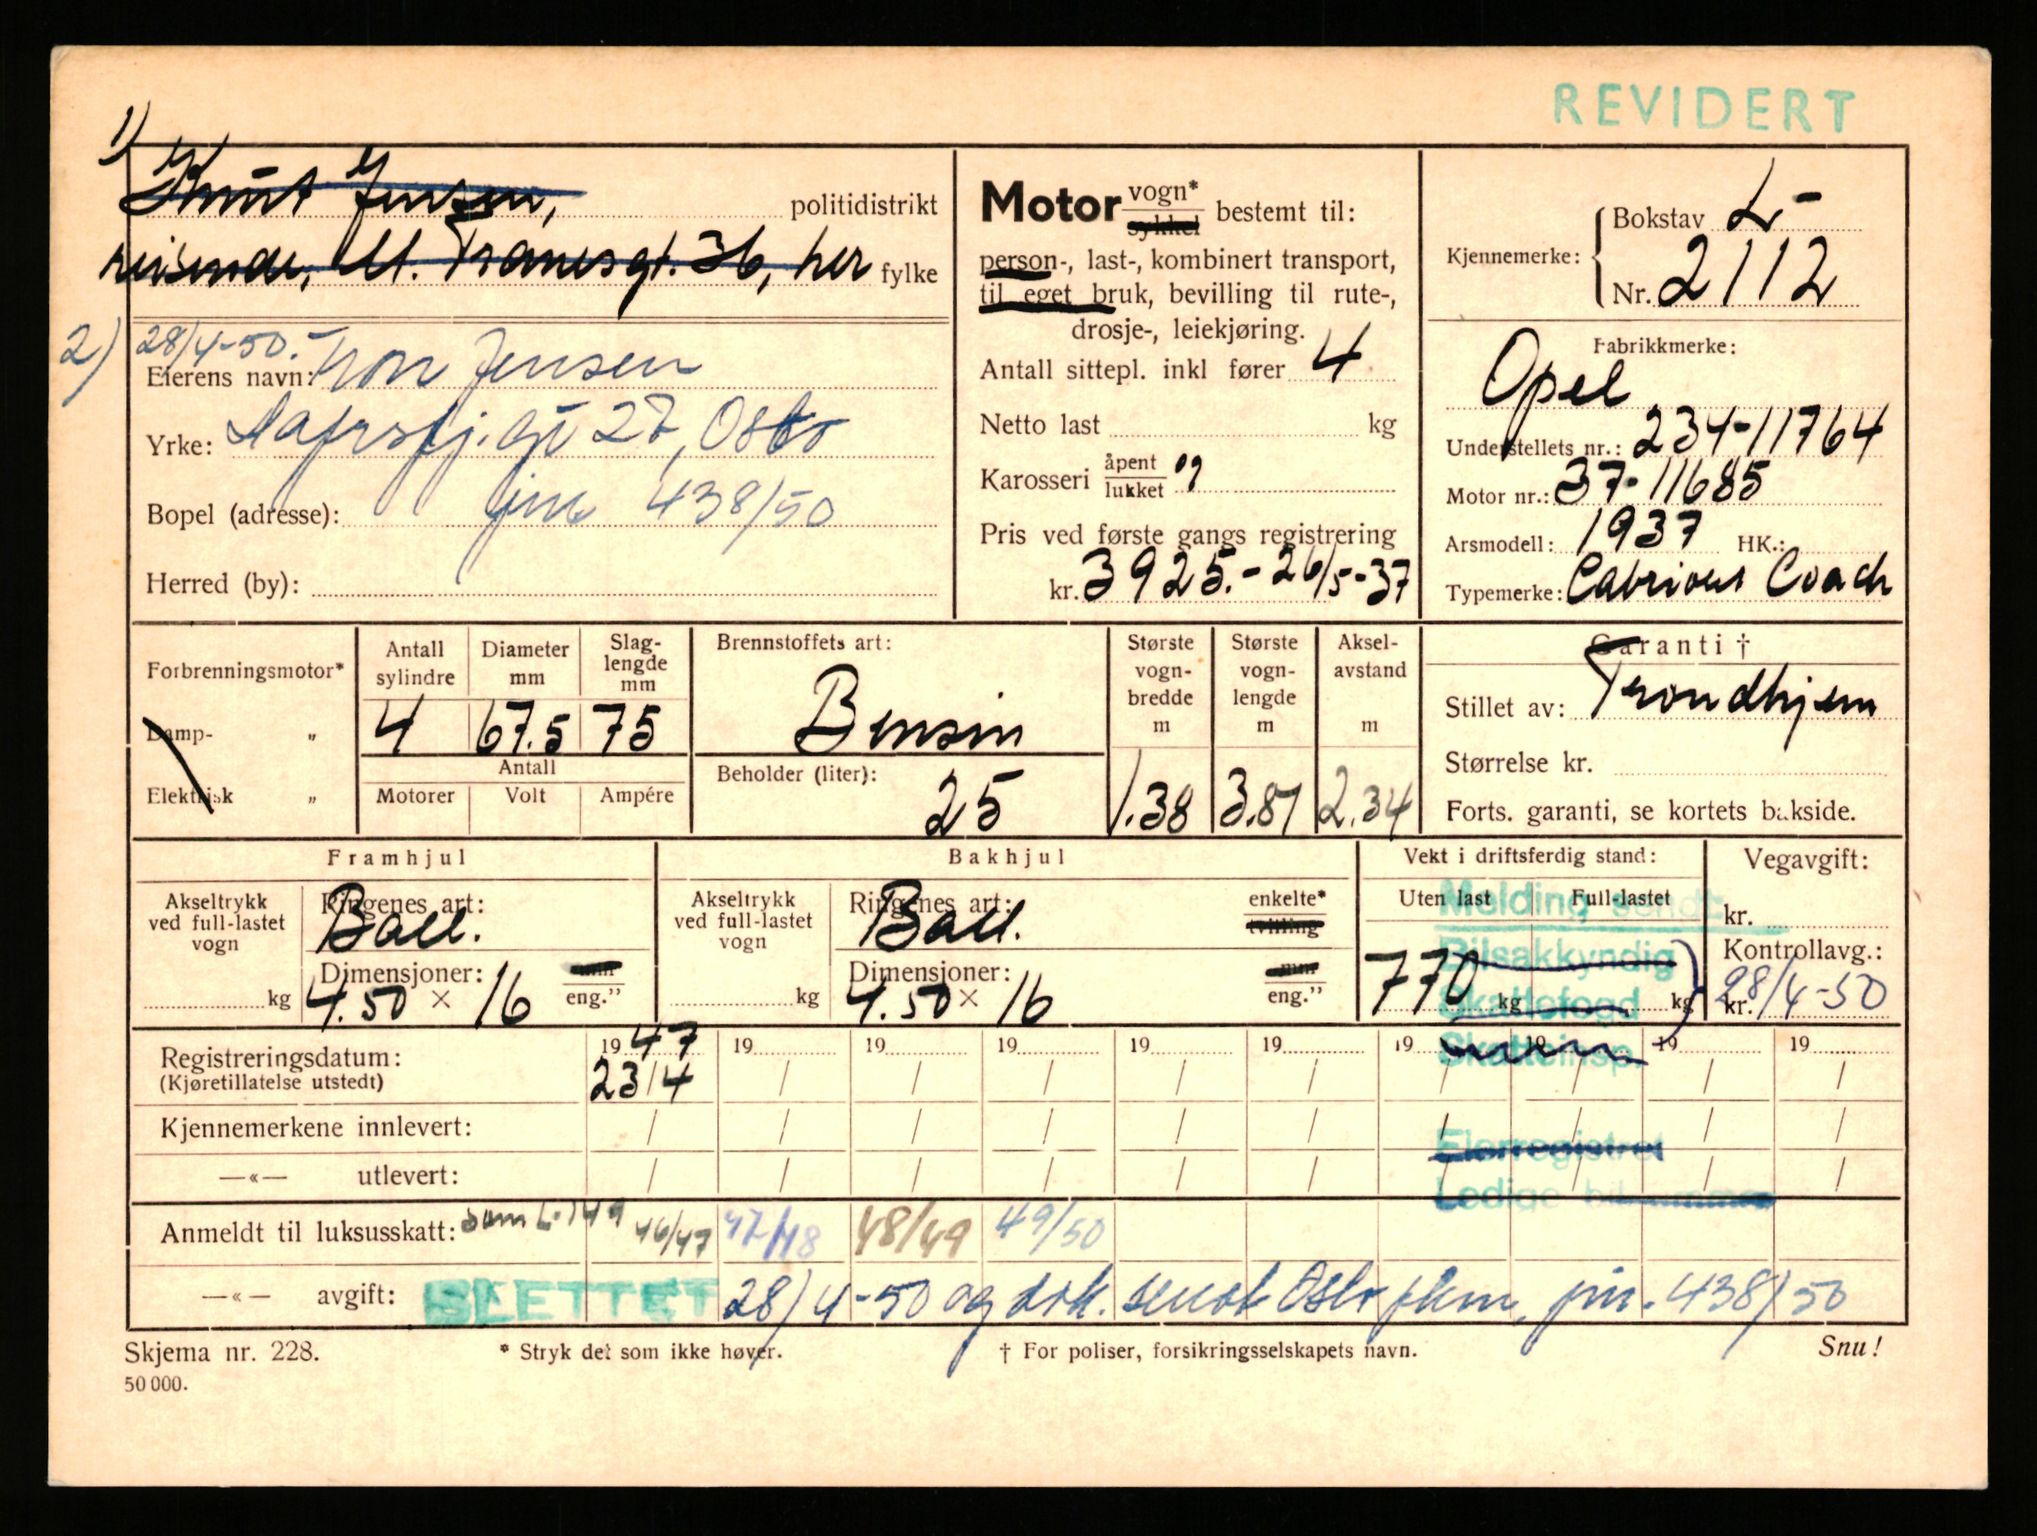 REVIDERT
1) Knut Jensen, politidistrikt
reisende, M. Tranesgt. 36, her fylke
2) 28/4-50.-
Eierens navn: Jensen
Yrke: Hafrsfj. gt 27, Oslo
Bopel (adresse): jnr 438/50
Herred (by):
Motor vogn* sykkel bestemt til:
person-, last-, kombinert transport,
til eget bruk, bevilling til rute-,
drosje-, leiekjøring.
Antall sittepl. inkl fører 4
Netto last kg
Karosseri åpent lukket og
Pris ved første gangs registrering
kr. 3925.- 26/5-37
Kjennemerke: Bokstav L-
Nr. 2112
Fabrikkmerke:
Opel
Understellets nr.: 234-11764
Motor nr.: 37-11685
Arsmodell: 1937 HK.:
Typemerke: Cabriolet Coach
Forbrenningsmotor*
Damp- „
Elektrisk „
Antall sylindre Diameter mm Slag-lengde mm
4 67.5 75
Antall
Motorer Volt Ampére
Brennstoffets art:
Bensin
Beholder (liter):
25
Største vogn-bredde m Største vogn-lengde m Aksel-avstand m
1.38 3.87 2.34
Garanti †
Stillet av: Trondhjem
Størrelse kr.
Forts. garanti, se kortets bakside.
Framhjul
Akseltrykk ved full-lastet vogn
kg
Ringenes art:
Ball.
Dimensjoner: mm
4.50 × 16 eng.”
Bakhjul
Akseltrykk ved full-lastet vogn
kg
Ringenes art: enkelte*
Ball. tvilling
Dimensjoner: mm
4.50 × 16 eng.”
Vekt i driftsferdig stand:
Uten last Full-lastet
770 kg kg
Vegavgift:
kr.
Kontrollavg.:
kr. 28/4-50
Melding sendt:
Bilsakkyndig
Skattefogd
Skatteinsp.
Eierregistret
Ledige bilnummer
Registreringsdatum: 1947 19 19 19 19 19 19 19 19 19
(Kjøretillatelse utstedt) 23/4 / / / / / / / / /
Kjennemerkene innlevert: / / / / / / / / / /
—«— utlevert: / / / / / / / / / /
Anmeldt til luksusskatt: som L-149 46/47 47/48 48/49 49/50
—«— avgift: SLETTET 28/4-50 og dok. sendt Oslo pkm, jnr. 438/50
Skjema nr. 228. * Stryk det som ikke høver. † For poliser, forsikringsselskapets navn. Snu!
50 000.